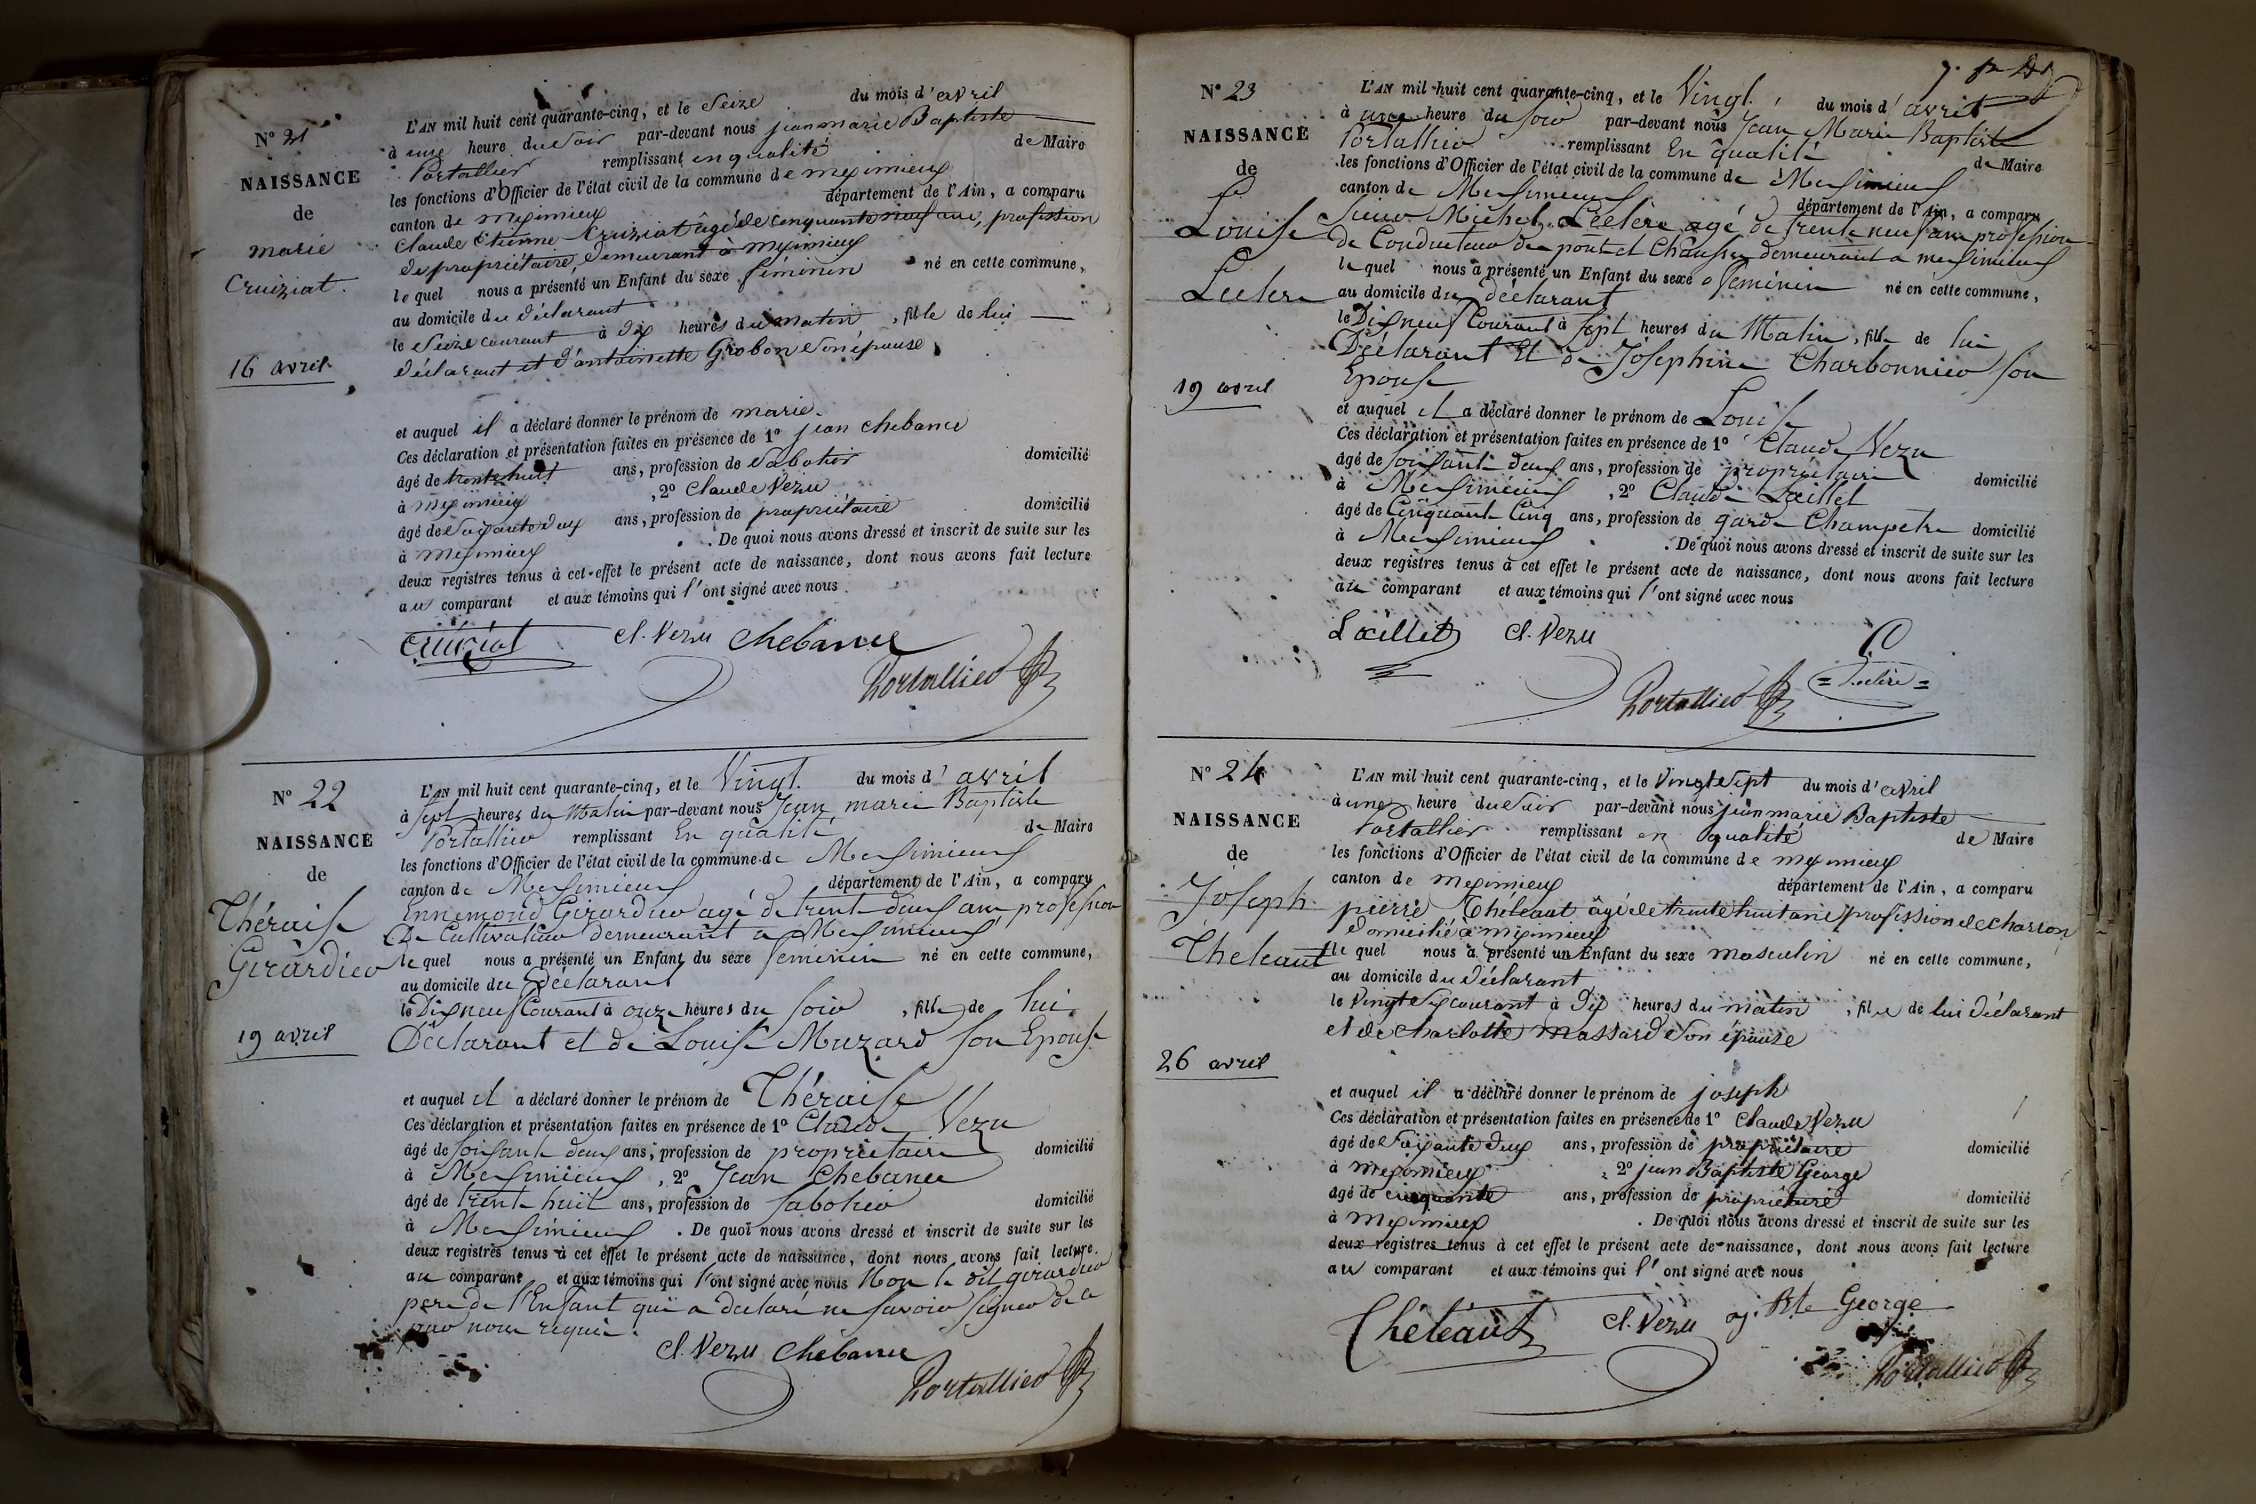 N° 21
NAISSANCE
de
marie
Cruiziat.
16 avril
L'AN mil huit cent quarante-cinq, et le Seize du mois d'avril
à une heure du Soir par-devant nous jean marie Baptiste
Portallier remplissant en qualité de Maire
les fonctions d'Officier de l'état civil de la commune de meximieux
canton de meximieux département de l'Ain, a comparu
Claude Etienne Cruiziat âgé de cinquante neuf ans, profession
de propriétaire, demeurant à meximieux
lequel nous a présenté un Enfant du sexe féminin né en cette commune,
au domicile du déclarant
le Seize courant à dix heures du matin, fille de lui
déclarant et d'antoinette Grobon Son épouse
et auquel il a déclaré donner le prénom de marie.
Ces déclaration et présentation faites en présence de 1° jean chebance
âgé de trente huit ans, profession de Sabotier domicilié
à meximieux, 2° Claude Vezu
âgé de Soixante deux ans, profession de propriétaire domicilié
à meximieux. De quoi nous avons dressé et inscrit de suite sur les
deux registres tenus à cet effet le présent acte de naissance, dont nous avons fait lecture
au comparant et aux témoins qui l'ont signé avec nous.
Cruiziat Cl. Vezu Chebance
Portallier
N° 22
NAISSANCE
de
Théraise
Girardier
19 avril
L'AN mil huit cent quarante-cinq, et le Vingt du mois d'avril
à Sept heures du Matin par-devant nous Jean marie Baptiste
Portallier remplissant En qualité de Maire
les fonctions d'Officier de l'état civil de la commune de Meximieux
canton de Meximieux département de l'Ain, a comparu
Ennemond Girardier agé de trente deux ans profession
De Cultivateur demeurant a Meximieux
lequel nous a présenté un Enfant du sexe féminin né en cette commune,
au domicile du Déclarant
le Dix neuf Courant à onze heures du soir, fille de lui
Déclarant et de Louise Muzard son Epouse
et auquel il a déclaré donner le prénom de Théraise
Ces déclaration et présentation faites en présence de 1° Claude Vezu
âgé de soixante deux ans, profession de propriétaire domicilié
à Meximieux, 2° Jean Chebance
âgé de trente huit ans, profession de sabotier domicilié
à Meximieux. De quoi nous avons dressé et inscrit de suite sur les
deux registres tenus à cet effet le présent acte de naissance, dont nous avons fait lecture.
au comparant et aux témoins qui l'ont signé avec nous Non le dit girardier
pere de l'Enfant qui a declaré ne savoir signer de ce
par nous requis.
Cl. Vezu Chebance
Portallier
N° 23
NAISSANCE
de
Louise
Leclere
19 avril
L'AN mil huit cent quarante-cinq, et le Vingt du mois d'avril
à une heure du soir par-devant nous Jean Marie Baptiste
Portallier remplissant En qualité de Maire
les fonctions d'Officier de l'état civil de la commune de Meximieux
canton de Meximieux département de l'Ain, a comparu
Sieur Michel Leclere agé de trente neuf ans profession
de Conducteur des pont et Chaussés demeurant a meximieux
lequel nous a présenté un Enfant du sexe féminin né en cette commune,
au domicile du déclarant
le Dix neuf Courant à sept heures du Matin, fille de lui
Déclarant Et de Joséphine Charbonnier son
Epouse
et auquel il a déclaré donner le prénom de Louise
Ces déclaration et présentation faites en présence de 1° Claude Vezu
âgé de soixante deux ans, profession de propriétaire domicilié
à Meximieux, 2° Claude Laillet
âgé de Cinquante Cinq ans, profession de garde Champetre domicilié
à Meximieux. De quoi nous avons dressé et inscrit de suite sur les
deux registres tenus à cet effet le présent acte de naissance, dont nous avons fait lecture
au comparant et aux témoins qui l'ont signé avec nous
Laillet Cl. Vezu
Leclere
Portallier
N° 24
NAISSANCE
de
Joseph
Theleaut
26 avril
L'AN mil huit cent quarante-cinq, et le Vingt Sept du mois d'avril
à une heure du Soir par-devant nous jean marie Baptiste
Portallier remplissant en qualité de Maire
les fonctions d'Officier de l'état civil de la commune de meximieux
canton de meximieux département de l'Ain, a comparu
pierre Théleaut âgé de trente huit ans profession de charron
domicilié à meximieux
lequel nous a présenté un Enfant du sexe masculin né en cette commune,
au domicile du déclarant
le Vingt Six courant à Dix heures du matin, fils de lui déclarant
et de charlotte massard Son épouse
et auquel il a déclaré donner le prénom de joseph
Ces déclaration et présentation faites en présence de 1° Claude Vezu
âgé de Soixante deux ans, profession de propriétaire domicilié
à meximieux, 2° jean Baptiste George
âgé de cinquante ans, profession de propriétaire domicilié
à meximieux. De quoi nous avons dressé et inscrit de suite sur les
deux registres tenus à cet effet le présent acte de naissance, dont nous avons fait lecture
au comparant et aux témoins qui l'ont signé avec nous
Théleaut Cl. Vezu J. Bte George
Portallier